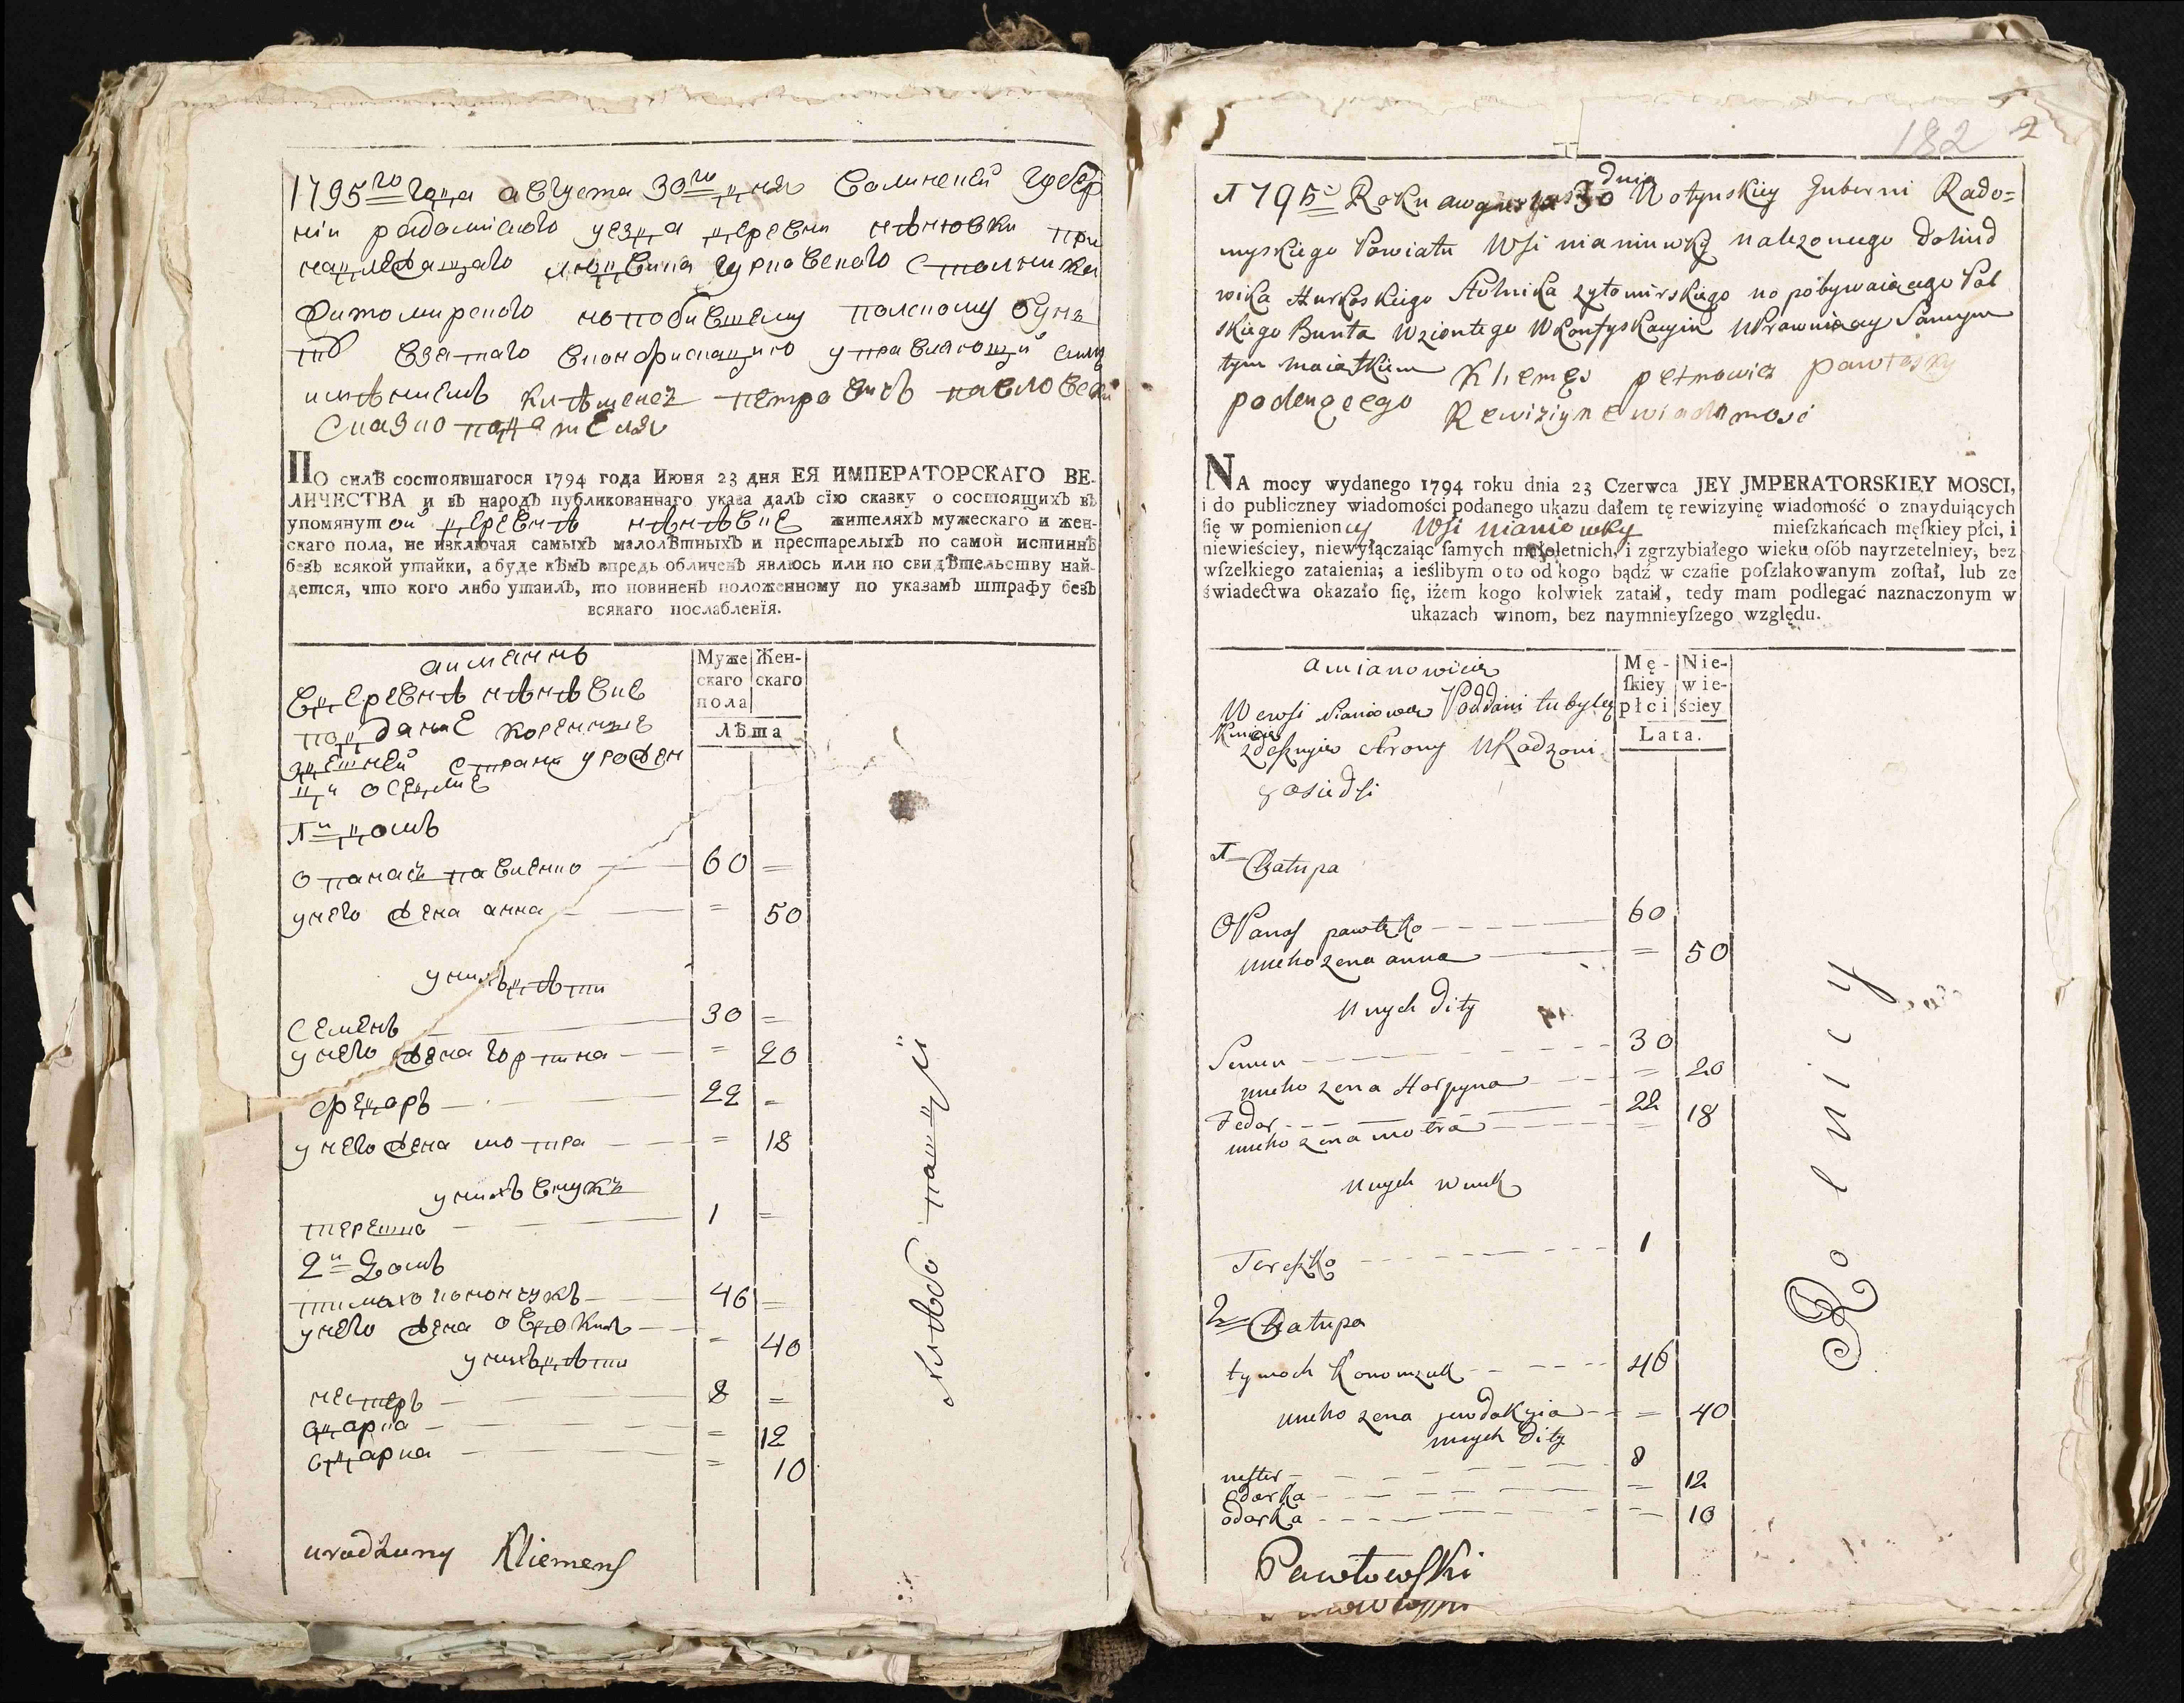 1795го года августа 30го дня Волинской губер
нiи радомiского уезда деревни нѣнювки при
надлежащаго людвика гурковского столника
житомирского
взятаго вконфискацию управляющий симъ
имѣниемъ климентъ петровичъ павловски
Сказко подателя
ПО силѣ состоявшагося 1794 года Июня 23 дня ЕЯ ИМПЕРАТОРСКАГО ВЕ-
ЛИЧЕСТВА и въ народъ публикованнаго указа далъ сїю сказку о состоящихъ въ
упомянутой деревнѣ нѣнѣвке жителяхъ мужескаго и жен-
скаго пола, не изключая самыхъ малолѣтныхъ и престарелыхъ по самой истиннѣ
безъ всякой утайки, а буде кѣмъ впредь обличенъ явлюсь или по свидѣтельству най-
дется, что кого либо утаилъ, то повиненъ положенному по указамъ штрафу безъ
всякаго послабленїя.
аименнъ
Муже
скаго
пола
Жен-
скаго
Лѣта
вдеревнѣ нѣнѣвке
подание коренние
здешней страни урожен
ци оседлие
1й домъ
опанасъ павленко 60 =
унего жена анна = 50
унихъ дѣти
семенъ 30 =
унего жена горпина = 20
федоръ 22 =
унего жена мотра = 18
унихъ внукъ
терешко 1 =
2й домъ
тимохо конончукъ 46 =
унего жена овдокия = 40
унихъ дѣти
нестеръ 8 =
одарка = 12
одарка = 10
хлѣбо пашцѣ
urodzony Kliemenſ
182 2
1795 Roku awgusta 30 dnia Wołynskiey Guberni Rado=
myskiego Powiatu Wſi nianiuwky nalezoncego doLiud
wika Hurkoskiego Stolnika zytomirskiego popobywaiącego Pol
skiego Bunta Wzientego Wkonfyskacyiu Uprawniaący Samym
tym maiątkiem Klemęs petrowicz pawłosky
podeuącego Rewizijne wiadomosć
NA mocy wydanego 1794 roku dnia 23 Czerwca JEY JMPERATORSKIEY MOSCI,
i do publiczney wiadomości podanego ukazu dałem tę rewizyinę wiadomość o znayduiących
ſię w pomienioncy Wſi nianiowky mieſzkańcach męſkiey płci, i
niewieściey, niewyłączaiąc ſamych małoletnich, i zgrzybiałego wieku oſób nayrzetelniey, bez
wſzelkiego zataienia; a ieślibym o to od kogo bądź w czaſie poſzlakowanym zoſtał, lub ze
świadectwa okazało ſię, iżem kogo kolwiek zataił, tedy mam podlegać naznaczonym w
ukazach winom, bez naymnieyſzego względu.
amianowicie
Mę-
ſkiey
płci
Nie-
wie-
ściey
Lata.
Wewſi Nianiowce Poddani tubylcy
zdeſznyiey strony Urodzoni
y osiedli
1 Chatupa
Opanaſ pawlęko 60
uneho zena anna = 50
Unych dity
Semen 30
uneho zena Horpyna = 20
Fedor 22
uneho zena motra = 18
Unych wnuk
Tereſzko 1
2 Chatupa
tymoch Kononczuk 46
uneho zena jewdokyia = 40
unych dity
neſter 8
odarka = 12
odarka = 10
Rolnicy
PawłowſKi